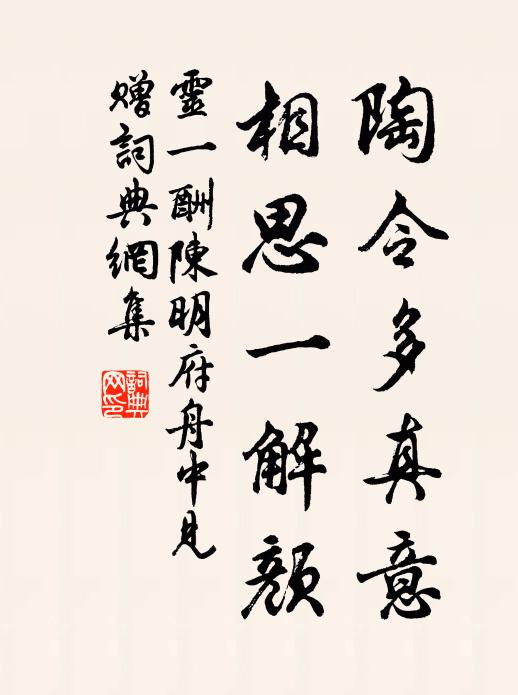 陶令多真意
相思一解顔
靈一酬陳明府舟中見
贈詞典網集
詞典
网印